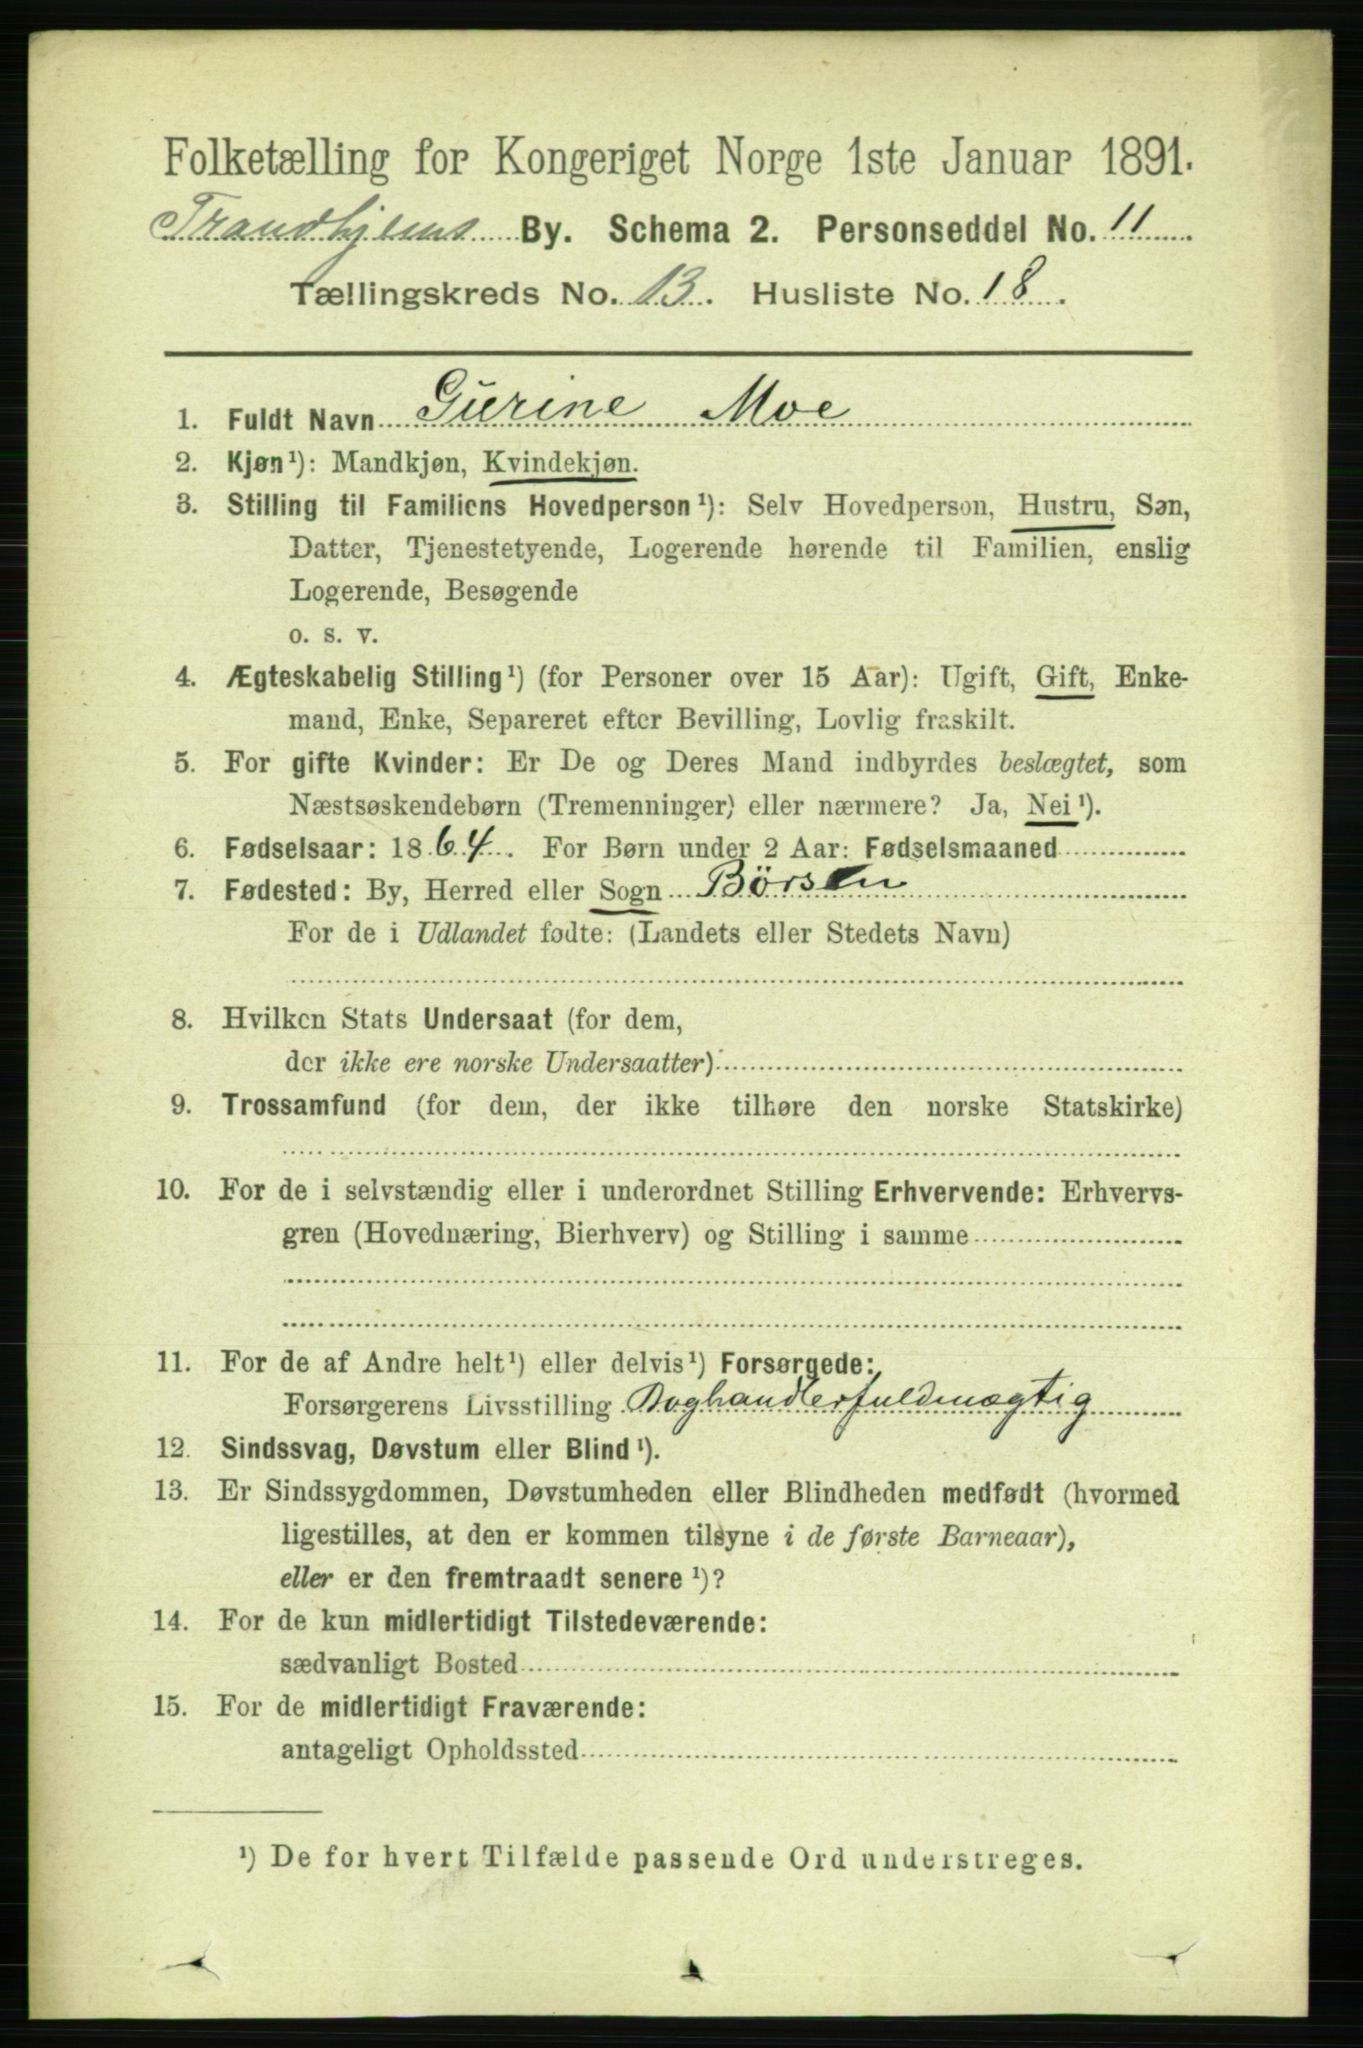 Folketælling for Kongeriget Norge 1ste Januar 1891.
Trondhjems By. Schema 2. Personseddel No. 11
Tællingskreds No. 13. Husliste No. 18.
1. Fuldt Navn Gurine Moe
2. Kjøn¹): Mandkjøn, Kvindekjøn.
3. Stilling til Familiens Hovedperson¹): Selv Hovedperson, Hustru, Søn,
Datter, Tjenestetyende, Logerende hørende til Familien, enslig
Logerende, Besøgende
o. s. v.
4. Ægteskabelig Stilling¹) (for Personer over 15 Aar): Ugift, Gift, Enke-
mand, Enke, Separeret efter Bevilling, Lovlig fraskilt.
5. For gifte Kvinder: Er De og Deres Mand indbyrdes beslægtet, som
Næstsøskendebørn (Tremenninger) eller nærmere? Ja, Nei¹).
6. Fødselsaar: 1864. For Børn under 2 Aar: Fødselsmaaned
7. Fødested: By, Herred eller Sogn Börsen
For de i Udlandet fødte: (Landets eller Stedets Navn)
8. Hvilken Stats Undersaat (for dem,
der ikke ere norske Undersaatter)
9. Trossamfund (for dem, der ikke tilhøre den norske Statskirke)
10. For de i selvstændig eller i underordnet Stilling Erhvervende: Erhvervs-
gren (Hovednæring, Bierhverv) og Stilling i samme
11. For de af Andre helt¹) eller delvis¹) Forsørgede:
Forsørgerens Livsstilling Boghandlerfuldmægtig
12. Sindssvag, Døvstum eller Blind¹).
13. Er Sindssygdommen, Døvstumheden eller Blindheden medfødt (hvormed
ligestilles, at den er kommen tilsyne i de første Barneaar),
eller er den fremtraadt senere¹)?
14. For de kun midlertidigt Tilstedeværende:
sædvanligt Bosted
15. For de midlertidigt Fraværende:
antageligt Opholdssted
¹) De for hvert Tilfælde passende Ord understreges.